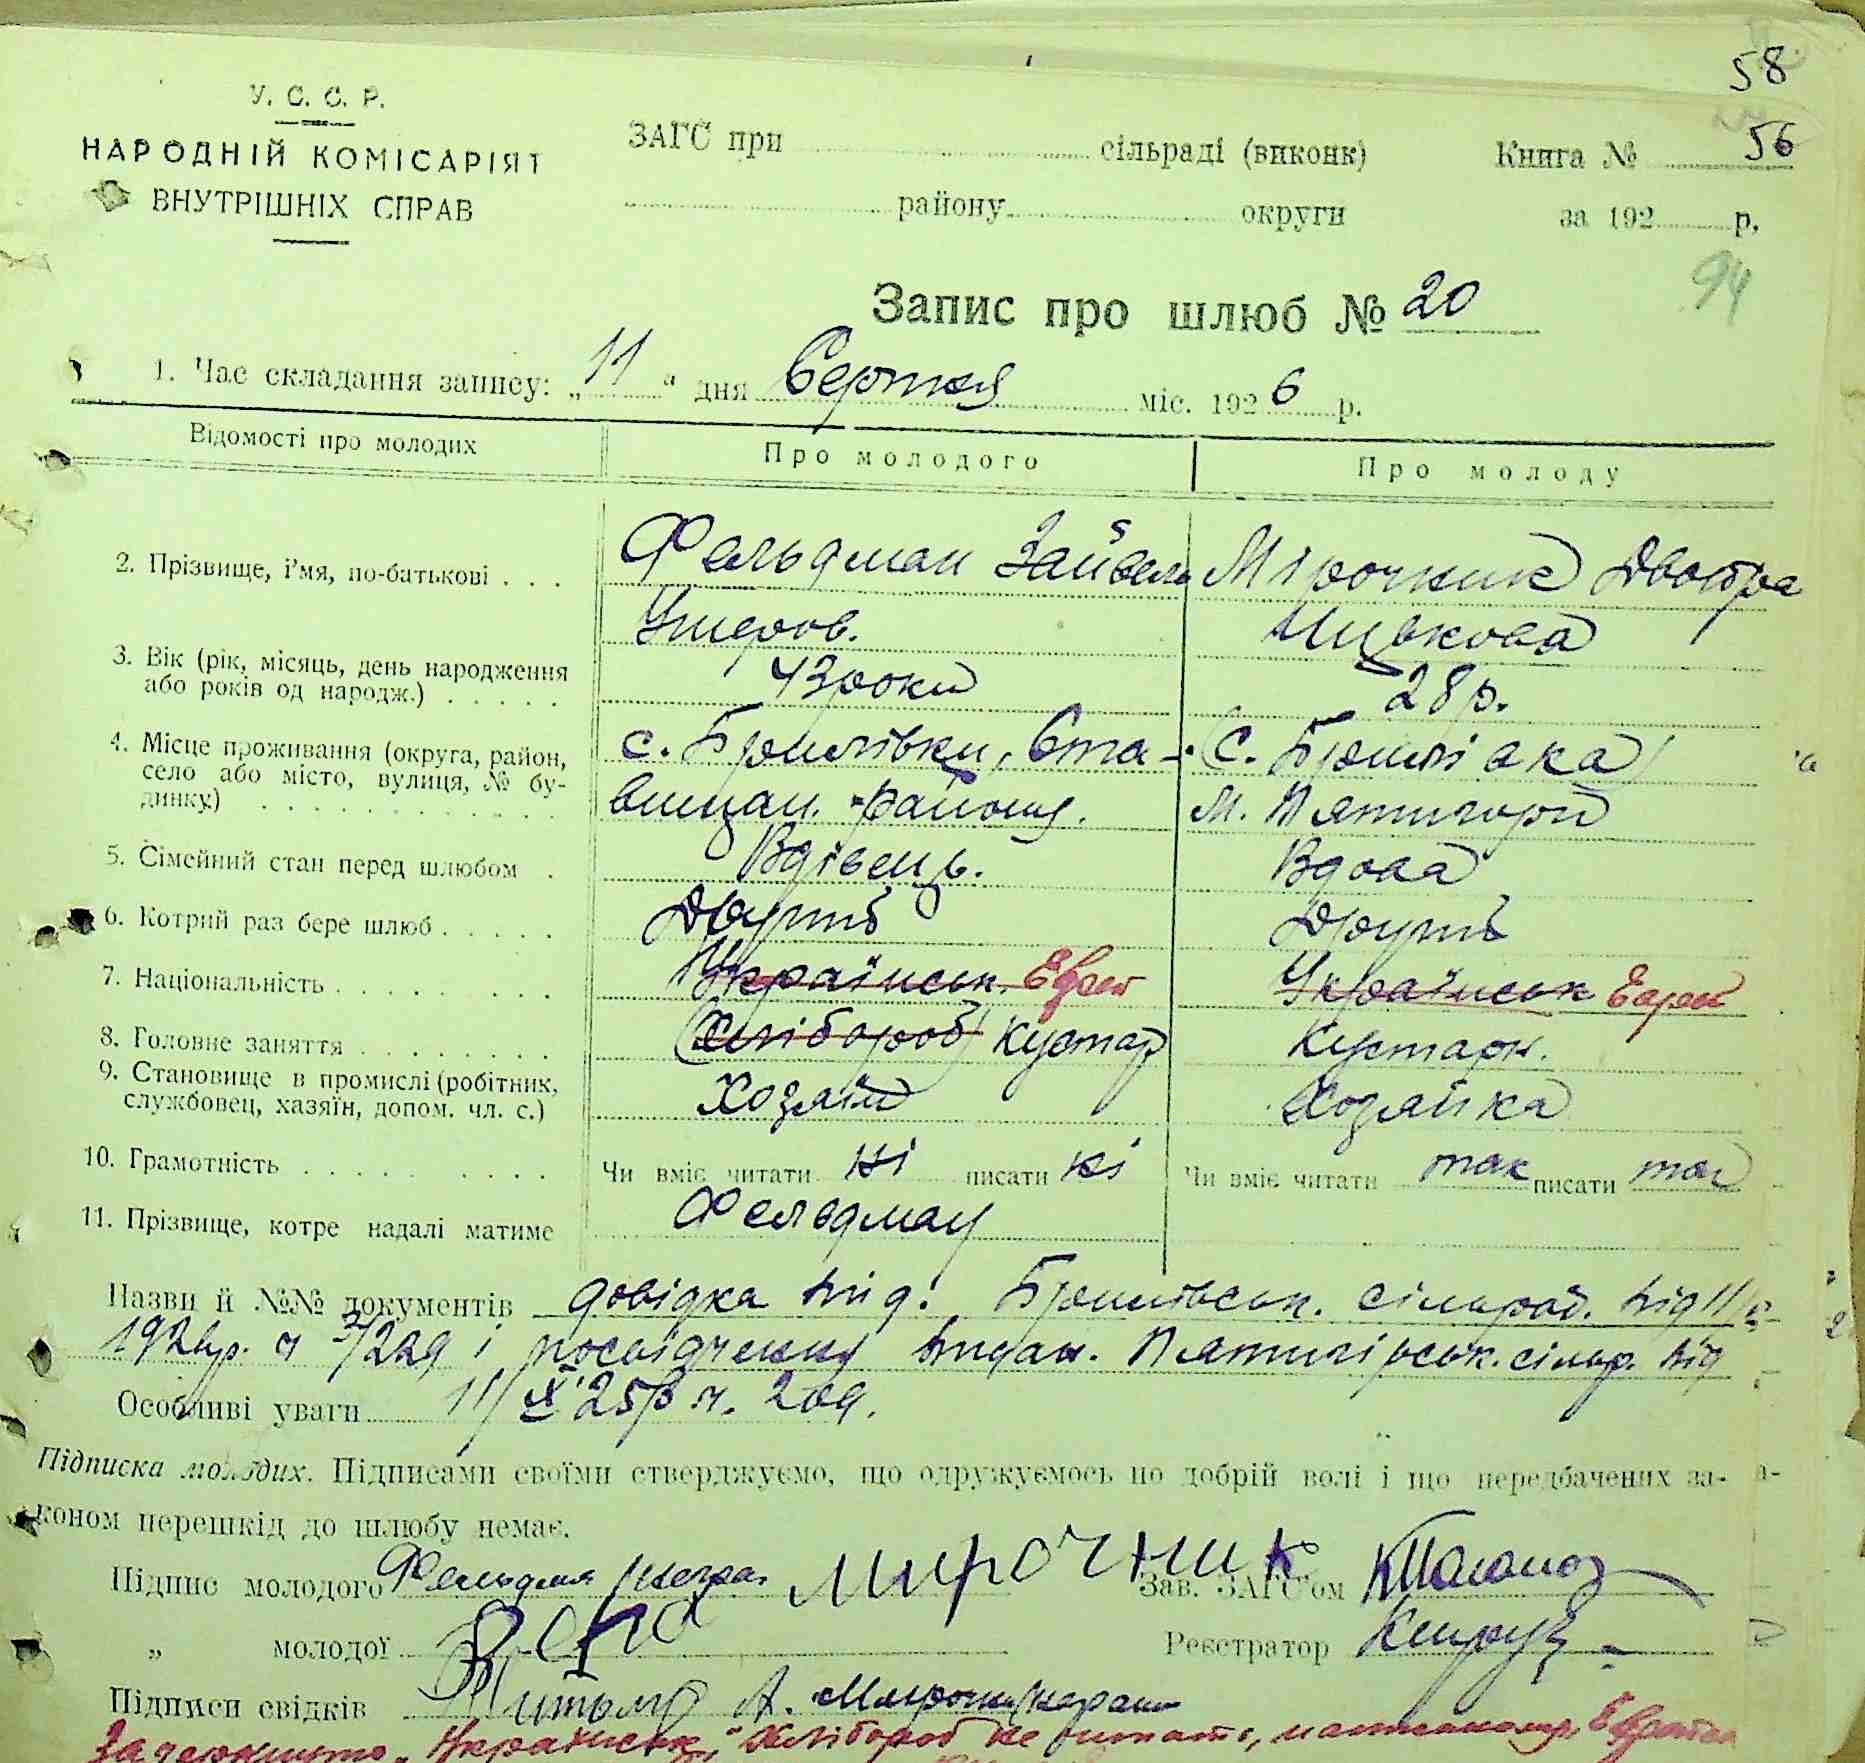 58
У. С. С. Р.
НАРОДНІЙ КОМІСАРІЯТ
ВНУТРІШНІХ СПРАВ
ЗАГС при сільраді (виконк) Книга № 56
району округи за 192 р.
94
Запис про шлюб № 20
1. Час складання запису: „11“ дня Серпня міс. 1926 р.
Відомості про молодих Про молодого Про молоду
2. Прізвище, і'мя, по-батькові . . . Фельдман Зайвель Мірочник Двойра
Ушеров. Ицькова
3. Вік (рік, місяць, день народження або років од народж.) . . . . . 43 роки 28 р.
4. Місце проживання (округа, район, с. Брилівки, Ста- С. Брилівка
село або місто, вулиця, № бу-
динку.) вищан. району. м. Пятигори
5. Сімейний стан перед шлюбом . Вдівець. Вдова
6. Котрий раз бере шлюб . . . . . Другий Другий
7. Національність . . . . . . . . Українськ. Еврей Українськ Еврей
8. Головне заняття . . . . . . . . Хлібороб Кустар Кустарн.
9. Становище в промислі (робітник,
службовец, хазяїн, допом. чл. с.) Хозяїн Хозяйка
10. Грамотність . . . . . . . . . Чи вміє читати ні писати ні Чи вміє читати так писати так
11. Прізвище, котре надалі матиме Фельдман
Назви й №№ документів довідка вид. Брилівськ. сільрад. від 11/
1926р. ч 3/229 і посвідчення видан. Пятигірськ. сільр. від
Особливі уваги 11/XI 25р ч. 209.
Підписка молодих. Підписами своїми стверджуємо, що одружуємось по добрій волі і що передбачених за-
коном перешкід до шлюбу немає.
Підпис молодого Фельдман Мирочник Зав. ЗАГС'ом
„ молодої Реєстратор
Підписи свідків А.
Задержнуто „Українськ“, Хлібороб не читать,